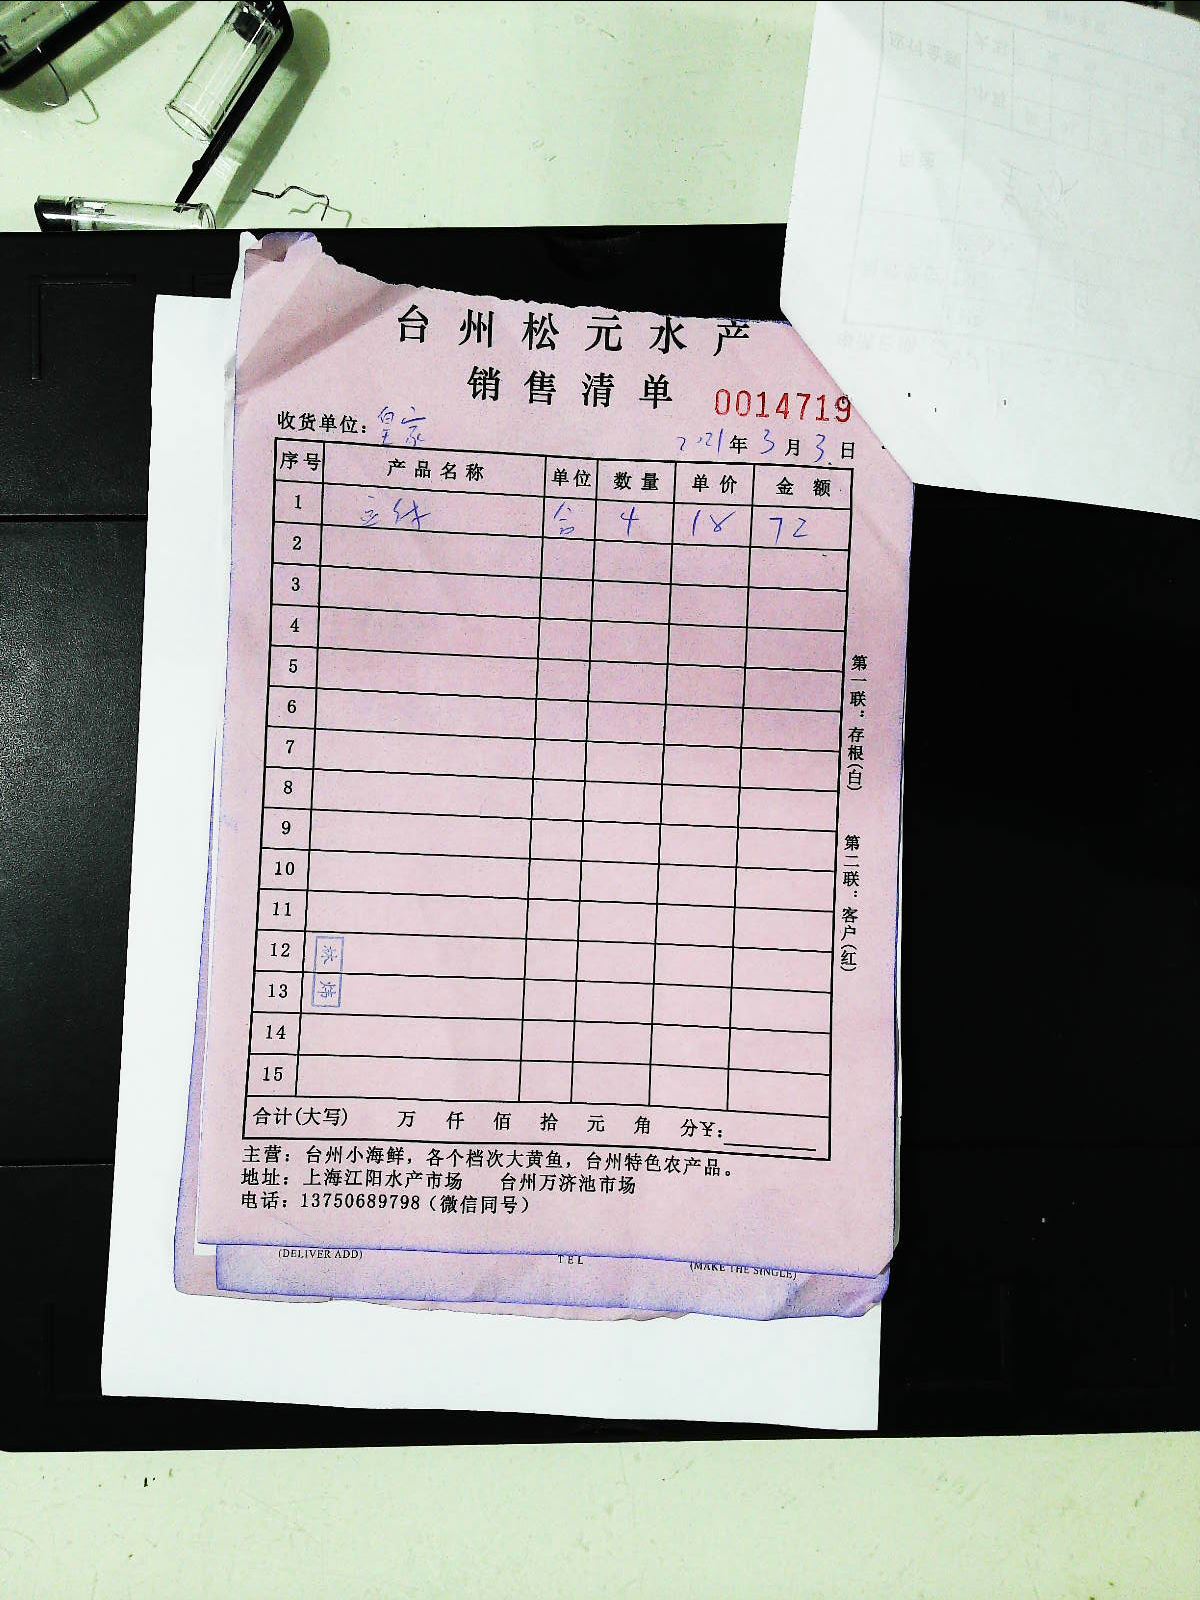 台州松元水产
销售清单 0014719
收货单位：皇家 2021年3月3日
序号 产品名称 单位 数量 单价 金额
1 合 4 18 72
2
3
4
5
6
7
8
9
10
11
12
13
14
15
合计(大写) 万 仟 佰 拾 元 角 分¥：
主营：台州小海鲜，各个档次大黄鱼，台州特色农产品。
地址：上海江阳水产市场 台州万济池市场
电话：13750689798（微信同号）
第一联：存根(白)
第二联：客户(红)
(DELIVER ADD) TEL (MAKE THE SINGLE)